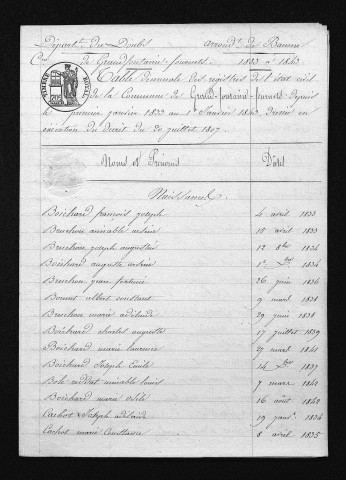 Départ.t du Doubs arrond.t de Baume
C.ne de Grandfontaine-fournets. 1833 à 1843
Table décennale des registres de l'état civil
de la Commune de Grand-fontaine-fournets depuis
le premier janvier 1833 au 1er Janvier 1843, dressée en
exécution du décret du 20 juillet 1807.
Noms et Prénoms Dates
Naissances
Boichard françois joseph 4 avril 1833
Bruchon aimable 15 avril 1833
Bruchon joseph augustin 12 8bre 1834
Boichard auguste 1er Xbre 1834
Bruchon jean fortuné 26 juin 1836
Bonnet albert constant 9 mars 1838
Bruchon marie adélaide 29 juin 1838
Boichard charles auguste 17 juillet 1839
Boichard marie laurence 27 mars 1841
Boichard Joseph Emile 14 Xbre 1837
Bole aimable louis 7 mars 1842
Boichard marie Odile 16 août 1842
Cachot Joseph adelaide 19 janv. 1834
Cachot marie Constance 8 avril 1835